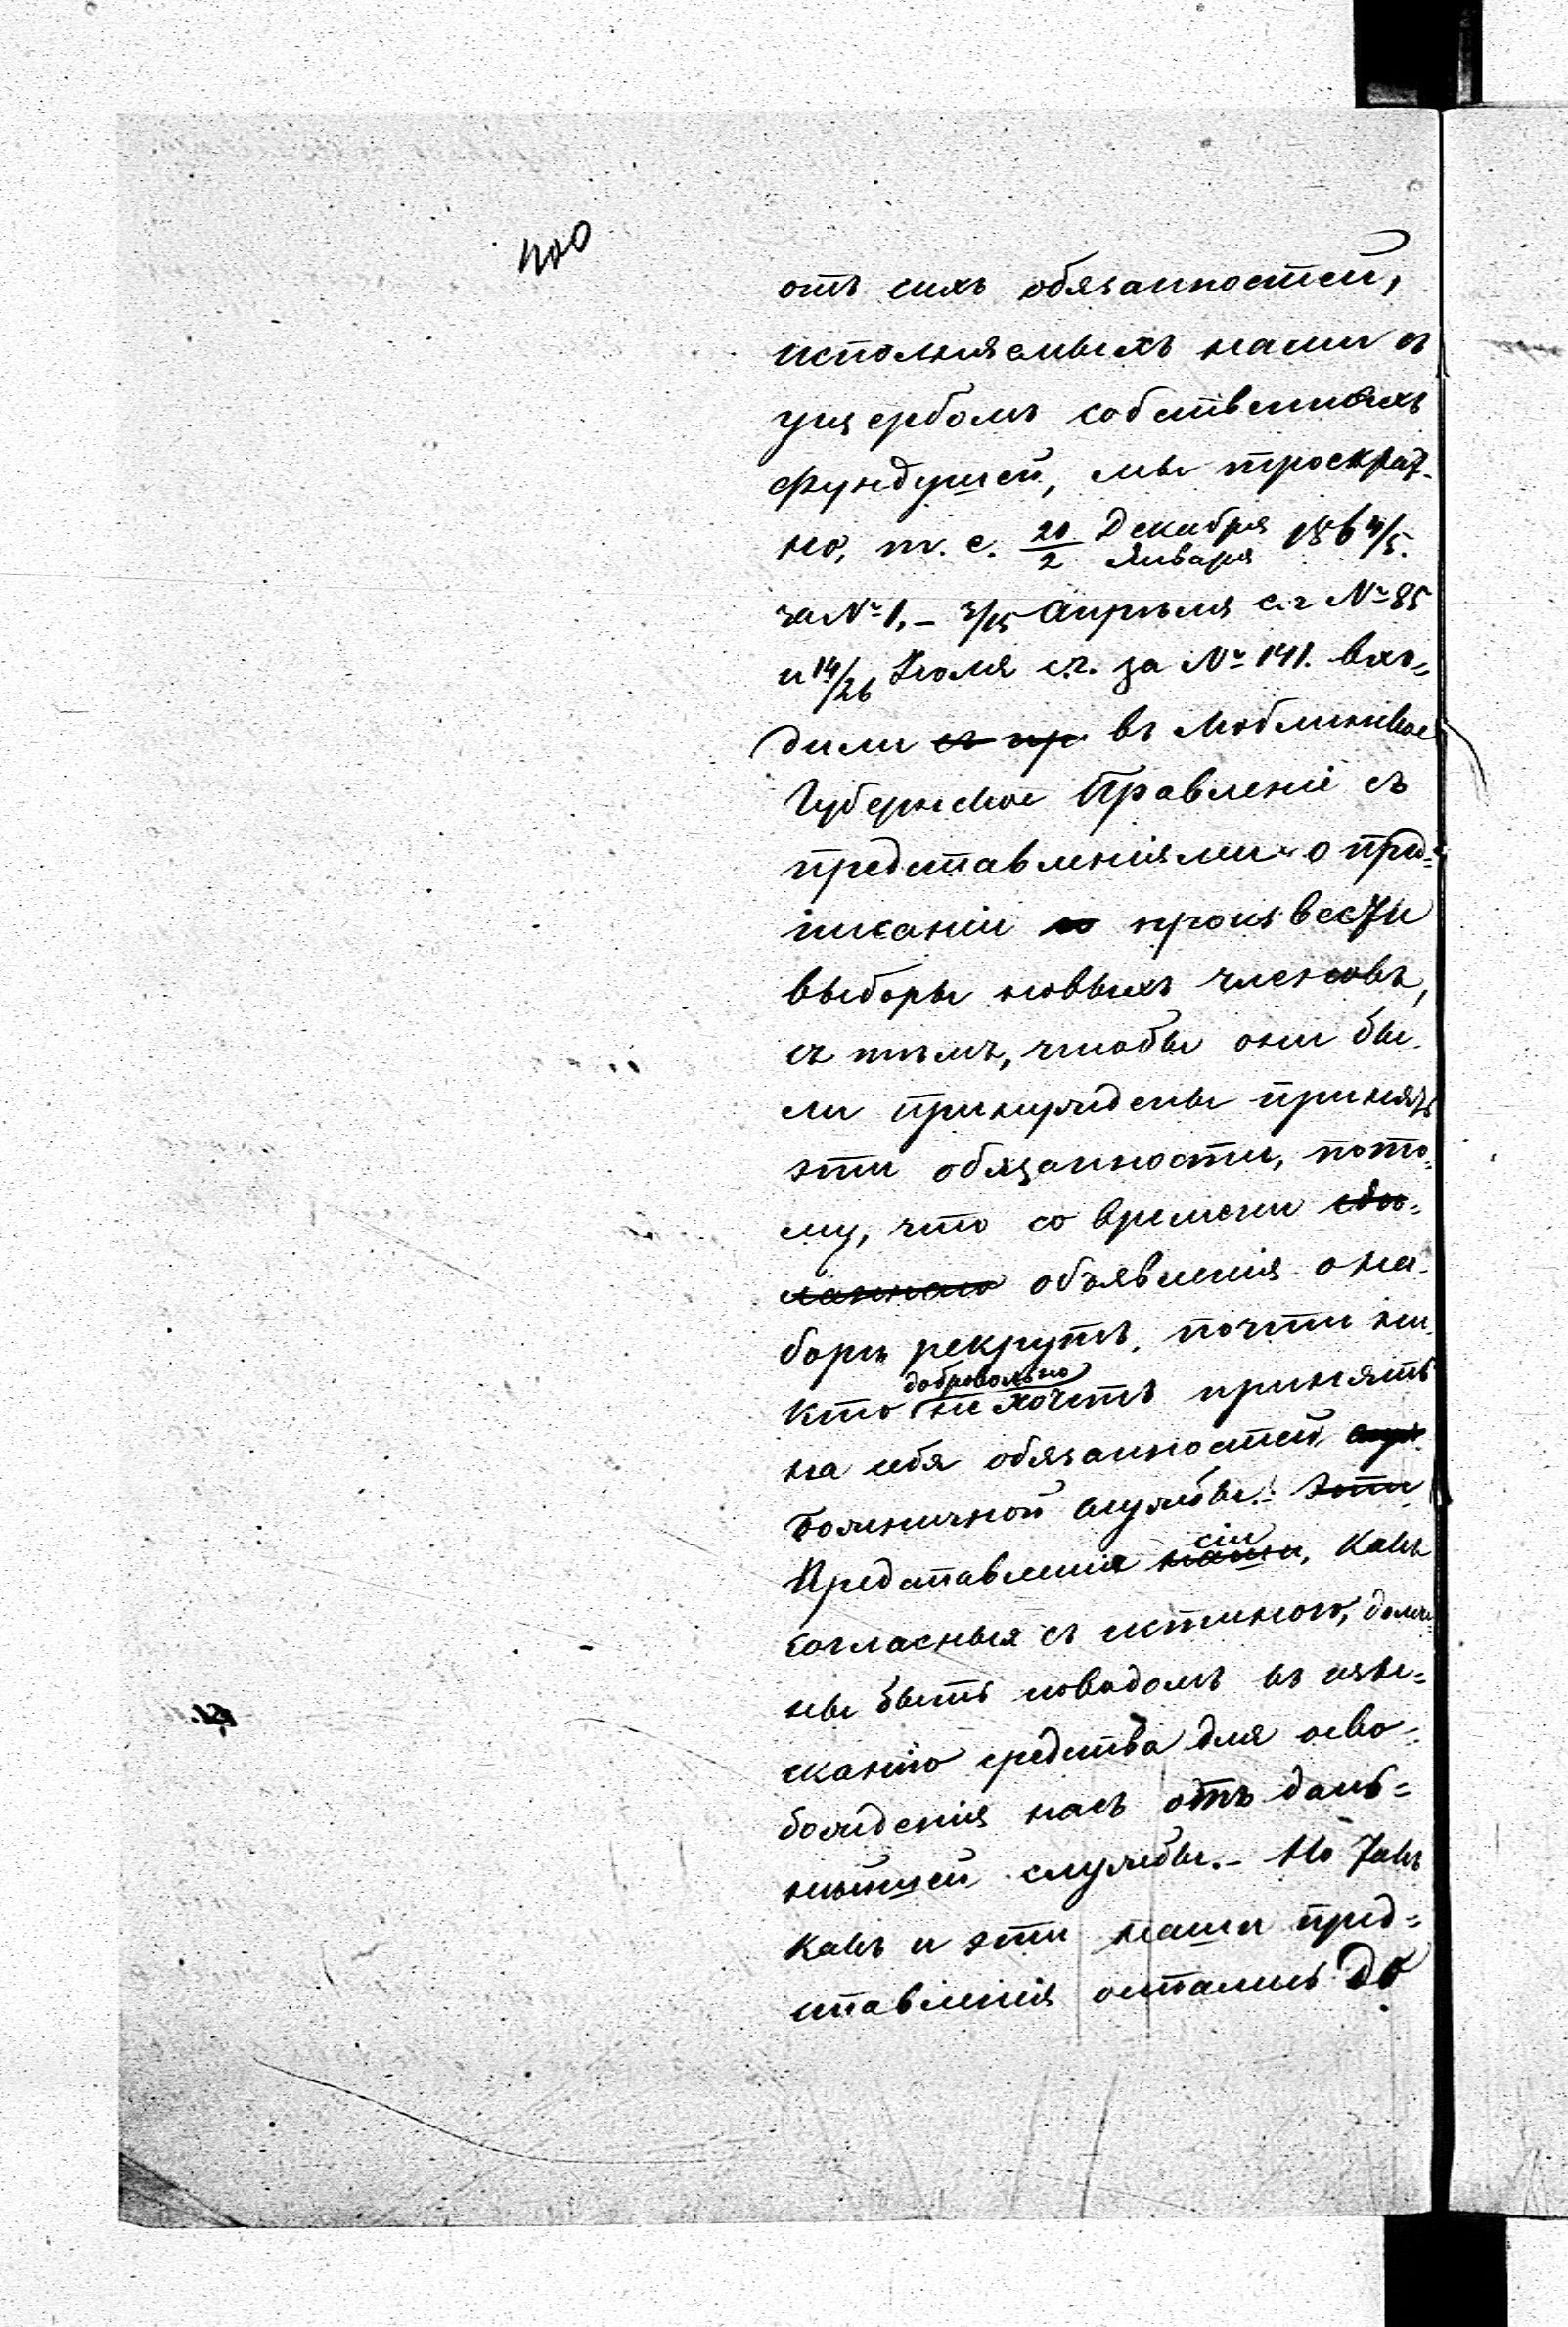 отъ сихъ обязанностей,
исполняемыхъ нами съ
ущербомъ собственныхъ
фундушей, мы троекрат-
но, т. е. 21/2 Декабря/Января 1864/5.
за № 1, - 3/15 Апрѣля с.г № 85
и 14/26 Іюля с.г. за № 141. вхо=
дили съ пр въ Люблинское
Губернское Правленіе съ
представленіями о пред=
писаніи произвести
выборы новыхъ членовъ,
съ тѣмъ, чтобы они бы-
ли принуждены принять
эти обязанности, пото=
му, что со времени сдѣ=
ланнаго объявленія о на-
борѣ рекрутъ, почти ни-
добровольно
кто не хочетъ принять
на себя обязанностей
божничной службы. Эти
сіи
Представленія наши, какъ
согласныя съ истиною, долж=
ны быть поводомъ къ изы=
сканію средства для осво-
божденія насъ отъ даль=
нѣйшей службы. - Но такъ
какъ и эти наши пред=
ставленія остались до